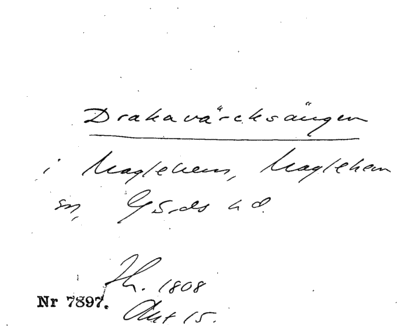 Drakavärcksängen
i Maglehem, Maglehem
sn, Gärds hd.
Th. 1808
Nr 7897.
Akt 15.